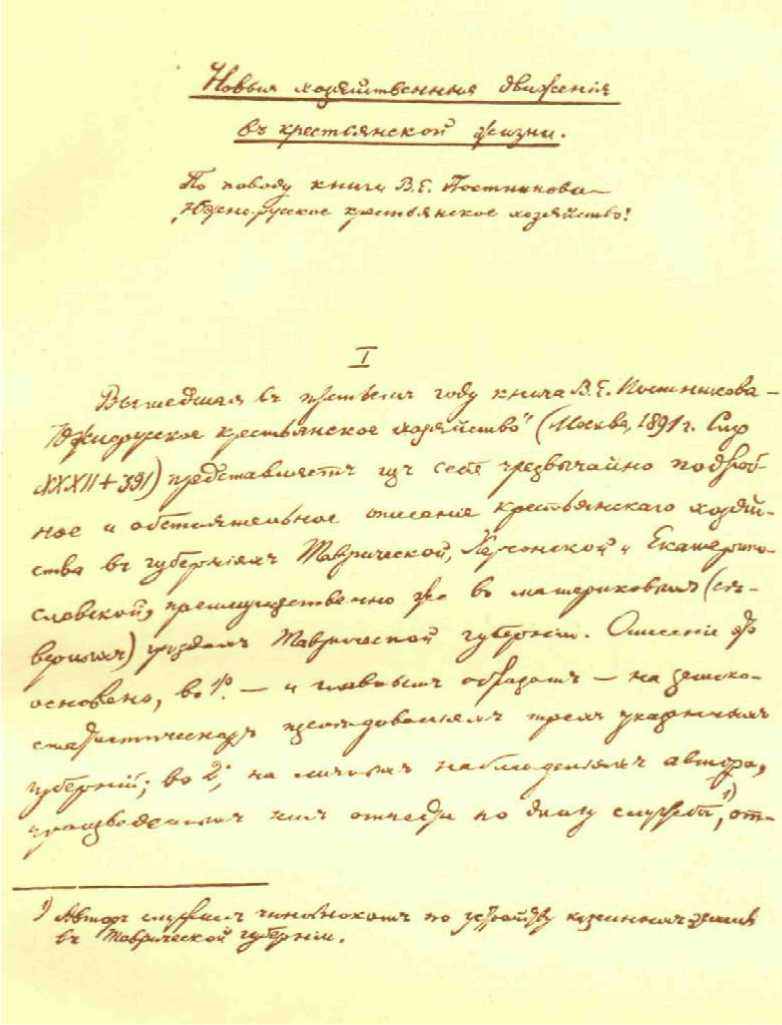 Новыя хозяйственныя движенія
въ крестьянской жизни.
По поводу книги В.Е. Постникова –
„Южно-русское крестьянское хозяйство“
I
Вышедшая въ  году книга В.Е. Постникова –
„Южнорусское крестьянское хозяйство“ (Москва, 1891 г. Стр
XXXII+391) представляетъ изъ себя чрезвычайно подроб-
ное и обстоятельное описаніе крестьянскаго хозяй-
ства въ губерніяхъ Таврической, Херсонской и Екатерино-
славской, преимущественно же въ материковыхъ (сѣ-
верныхъ) уѣздахъ Таврической губерніи. Описаніе это
основано, во 1ъ. – и главнымъ образомъ – на земско-
статистическихъ изслѣдованіяхъ трехъ указанныхъ
губерній; во 2ъ, на личныхъ наблюденіяхъ автора,
производившихся имъ отчасти по долгу службы 1), от-
1) Авторъ служилъ чиновникомъ по устройству казенныхъ земель
въ Таврической губерніи.